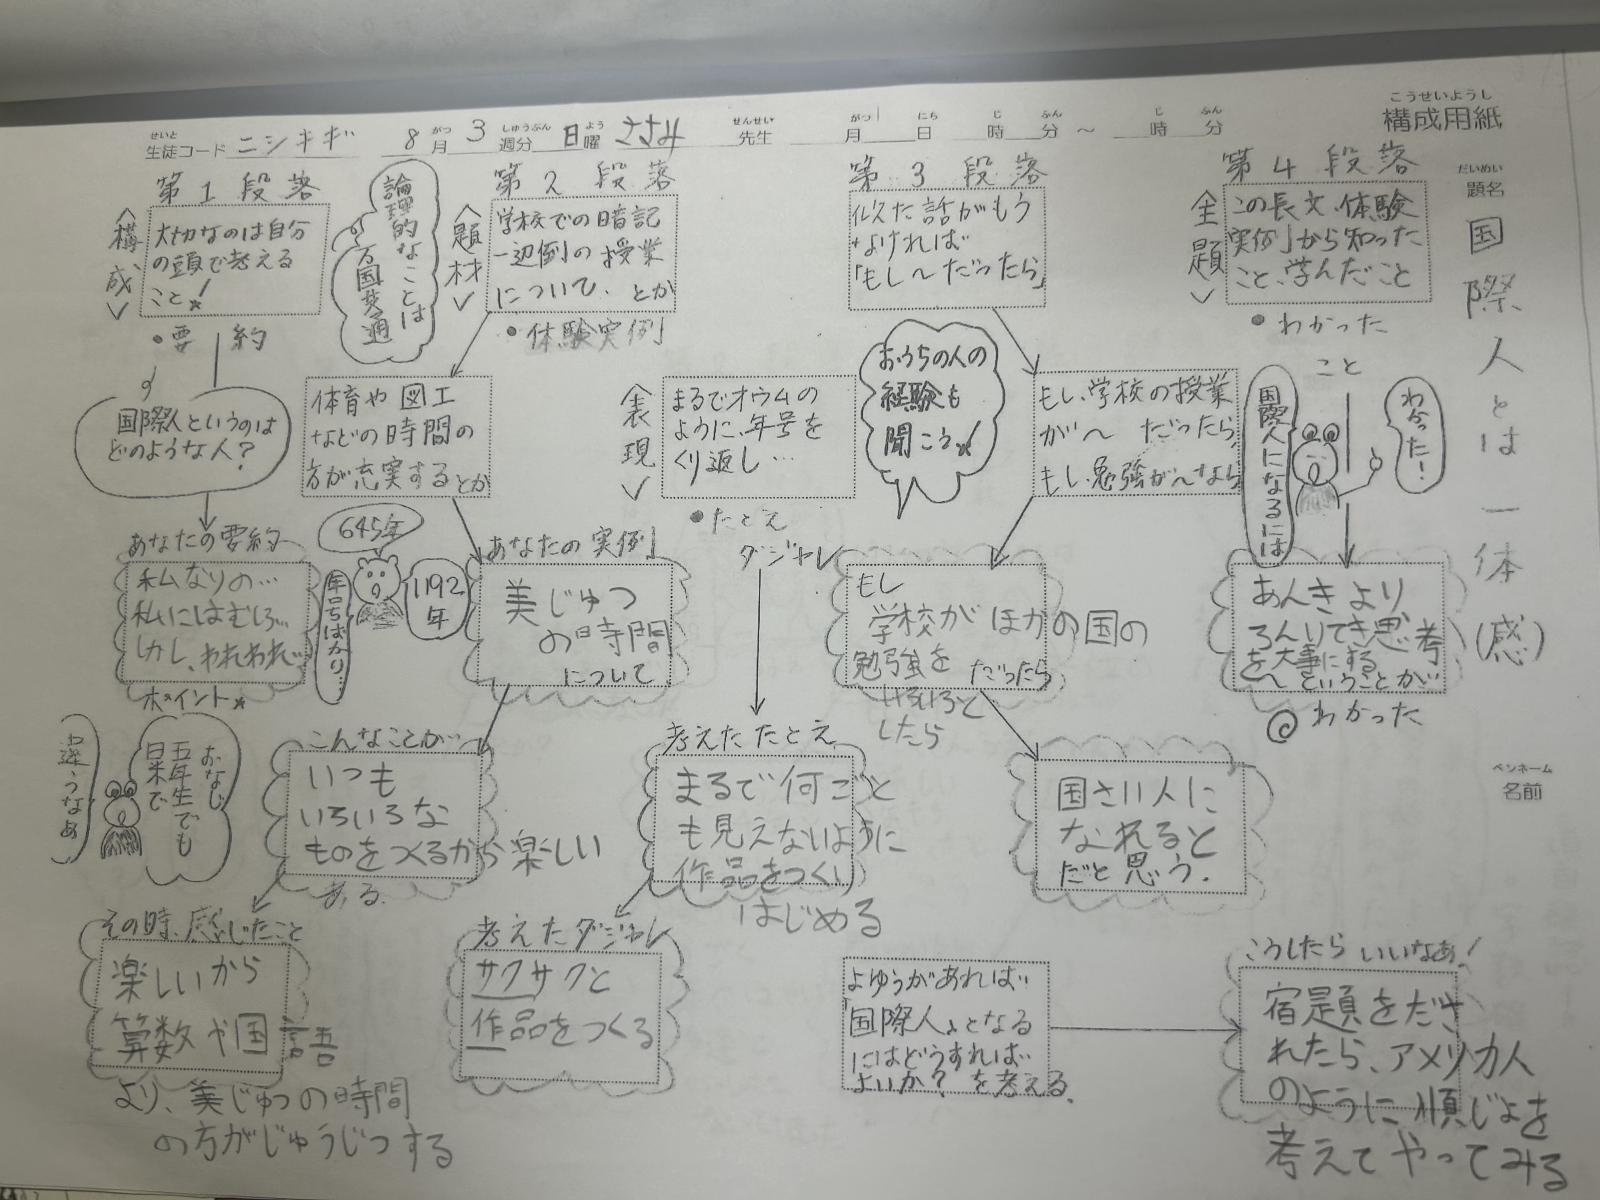 こうせいようし
構成用紙
せいと
生徒コード ニシキギ
8 がつ 月 3 しゅうぶん 週分 日 よう 曜 ささみ せんせい 先生
がつ 月 にち 日 じ 時 ふん 分 ～ じ 時 ふん 分
だいめい
題名
国際人とは一体(感)
ペンネーム
名前
第1段落
<構成>
大切なのは自分
の頭で考える
こと!
・要約
国際人というのは
どのような人?
あなたの要約
私なりの…
私にはむしろ…
しかし、われわれ…
ポイント
おなじ
五年生でも
日米で
違うなぁ
論理的なことは
万国共通
第2段落
<題材>
学校での暗記
一辺倒の授業
について、とか
・体験実例
体育や図工
などの時間の
方が充実するとか
645年
1192年
年号ばかり…
あなたの実例
美じゅつ
の時間
について
こんなことが…
いつも
いろいろな
ものをつくるから楽しい
ある.
その時、感じたこと
楽しいから
算数や国語
より、美じゅつの時間
の方がじゅうじつする
表現
まるでオウムの
ように、年号を
くり返し…
・たとえ
ダジャレ
考えたたとえ
まるで何ごと
も見えないように
作品をつくり
はじめる
考えたダジャレ
サクサクと
作品をつくる
第3段落
似た話がもう
なければ
「もし〜だったら」
おうちの人の
経験も
聞こう!
もし、学校の授業
が〜だったら
もし、勉強が〜なら
もし
学校がほかの国の
勉強を だったら
いろいろと
したら
国さい人に
なれると
だと思う.
よゆうがあれば
「国際人」となる
にはどうすれば
よいか? を考える.
第4段落
<主題>
この長文、体験
実例から知った
こと、学んだこと
・わかった
こと
国際人になるには
わかった!
あんきより
ろんりてき思考
を大事にする
〜ということが
わかった
こうしたらいいなあ!
宿題をださ
れたら、アメリカ人
のように順じょを
考えてやってみる